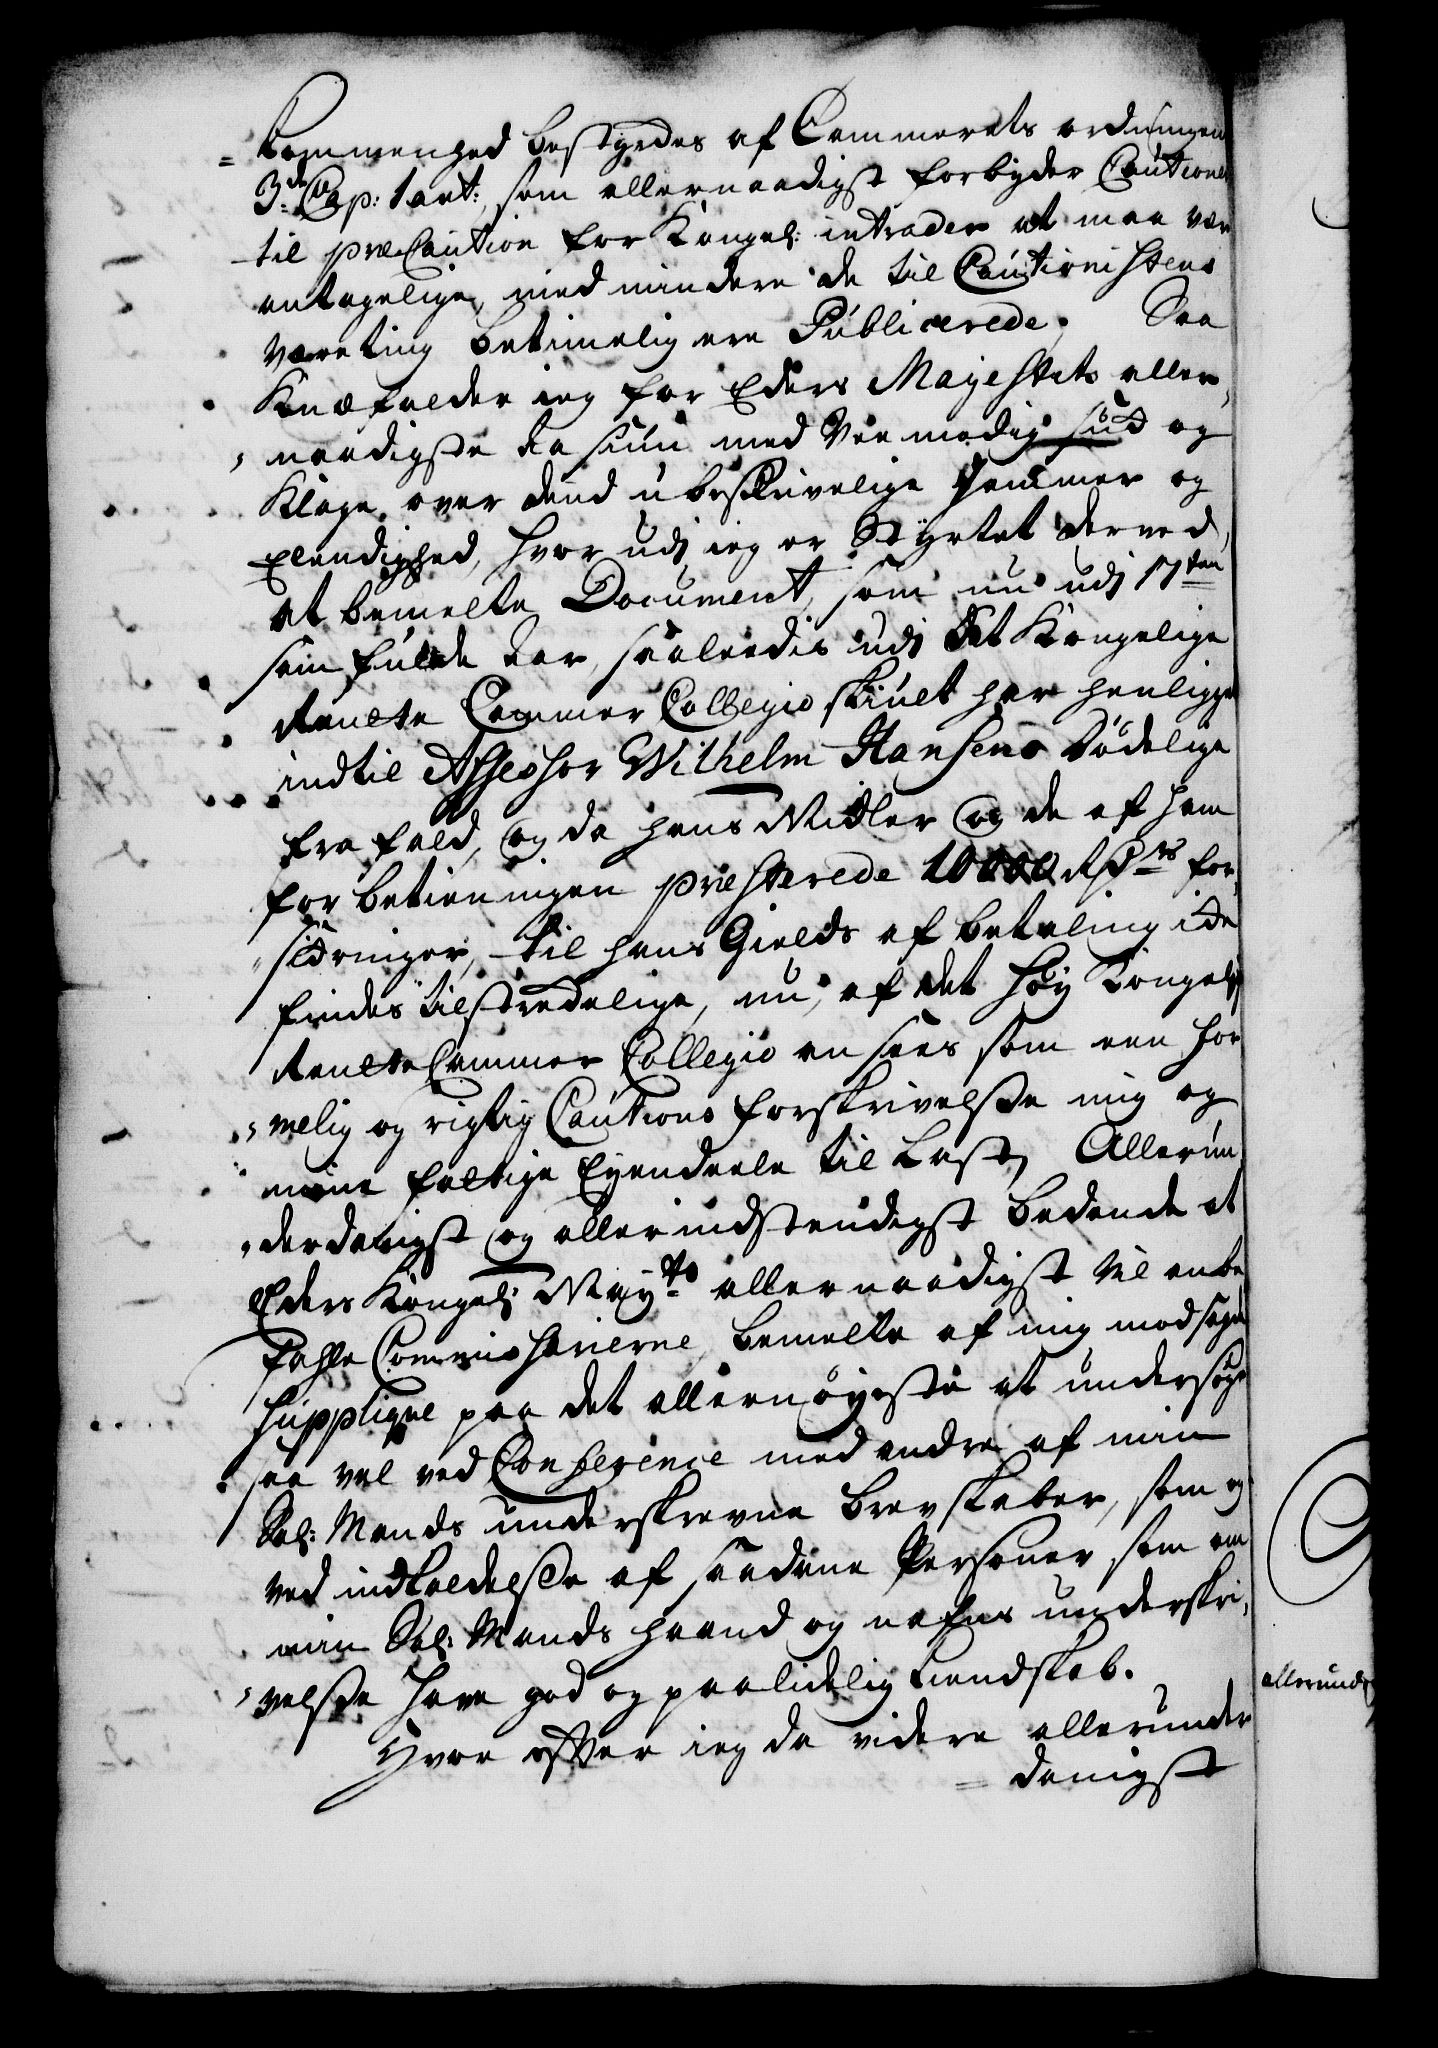 = kommenhed bestyrdes af Cammerets ordningens
3die Cap: 1 art: som allernaadigst forbyder Cautioner
til præCaution for Kongel: intrader at maa vær
antagelige, med mindere de til Cautionistens
Værneting betimelig ere Publicerede. Saa
Knæfalder ieg for Eders Mayestets aller¬
naadigste Aasiun med Vee modig Suk og
Klage over dend ubeskrivelige Jammer og
Elendighed, hvor udj ieg er Styrtet derved,
at bemelte Document, som nu udj 17ten
samfulde Aar, saaleedis udj Det Kongelige
Rente Cammer Collegio skiult har henligget
indtil Assessor Wilhelm Hansens Dødelige
fra fald, og da hans Midler og de af ham
for betieningen præsterede 10000 Rdrs for¬
sickringer, til hans Gields af betaling icke
findes tilstreckelige, nu, af det høy Kongel:
Rente Cammer Collegio ansees som een for
melig og rigtig Cautions forskrivelsse mig og
mine fattige Eyendeele til Last, Allerun
derdanigst og aller indstendigst bedende at
Eders Kongel: Mayts allernaadigst vil anbe
fahle Commissarierne, bemelte af mig modsagde
Supplique paa det allernøyeste at undersøge
saa vel ved Conference med andre af min
Sal: Mands underskrevne brevskaber, som og
ved indkaldelsse af saadane Personer som om
min Sal: Mands haand og nafns underskri¬
velsse have god og paalidelig kundskab.
Hvor effter ieg da videre allerunder
= danigst
allerund